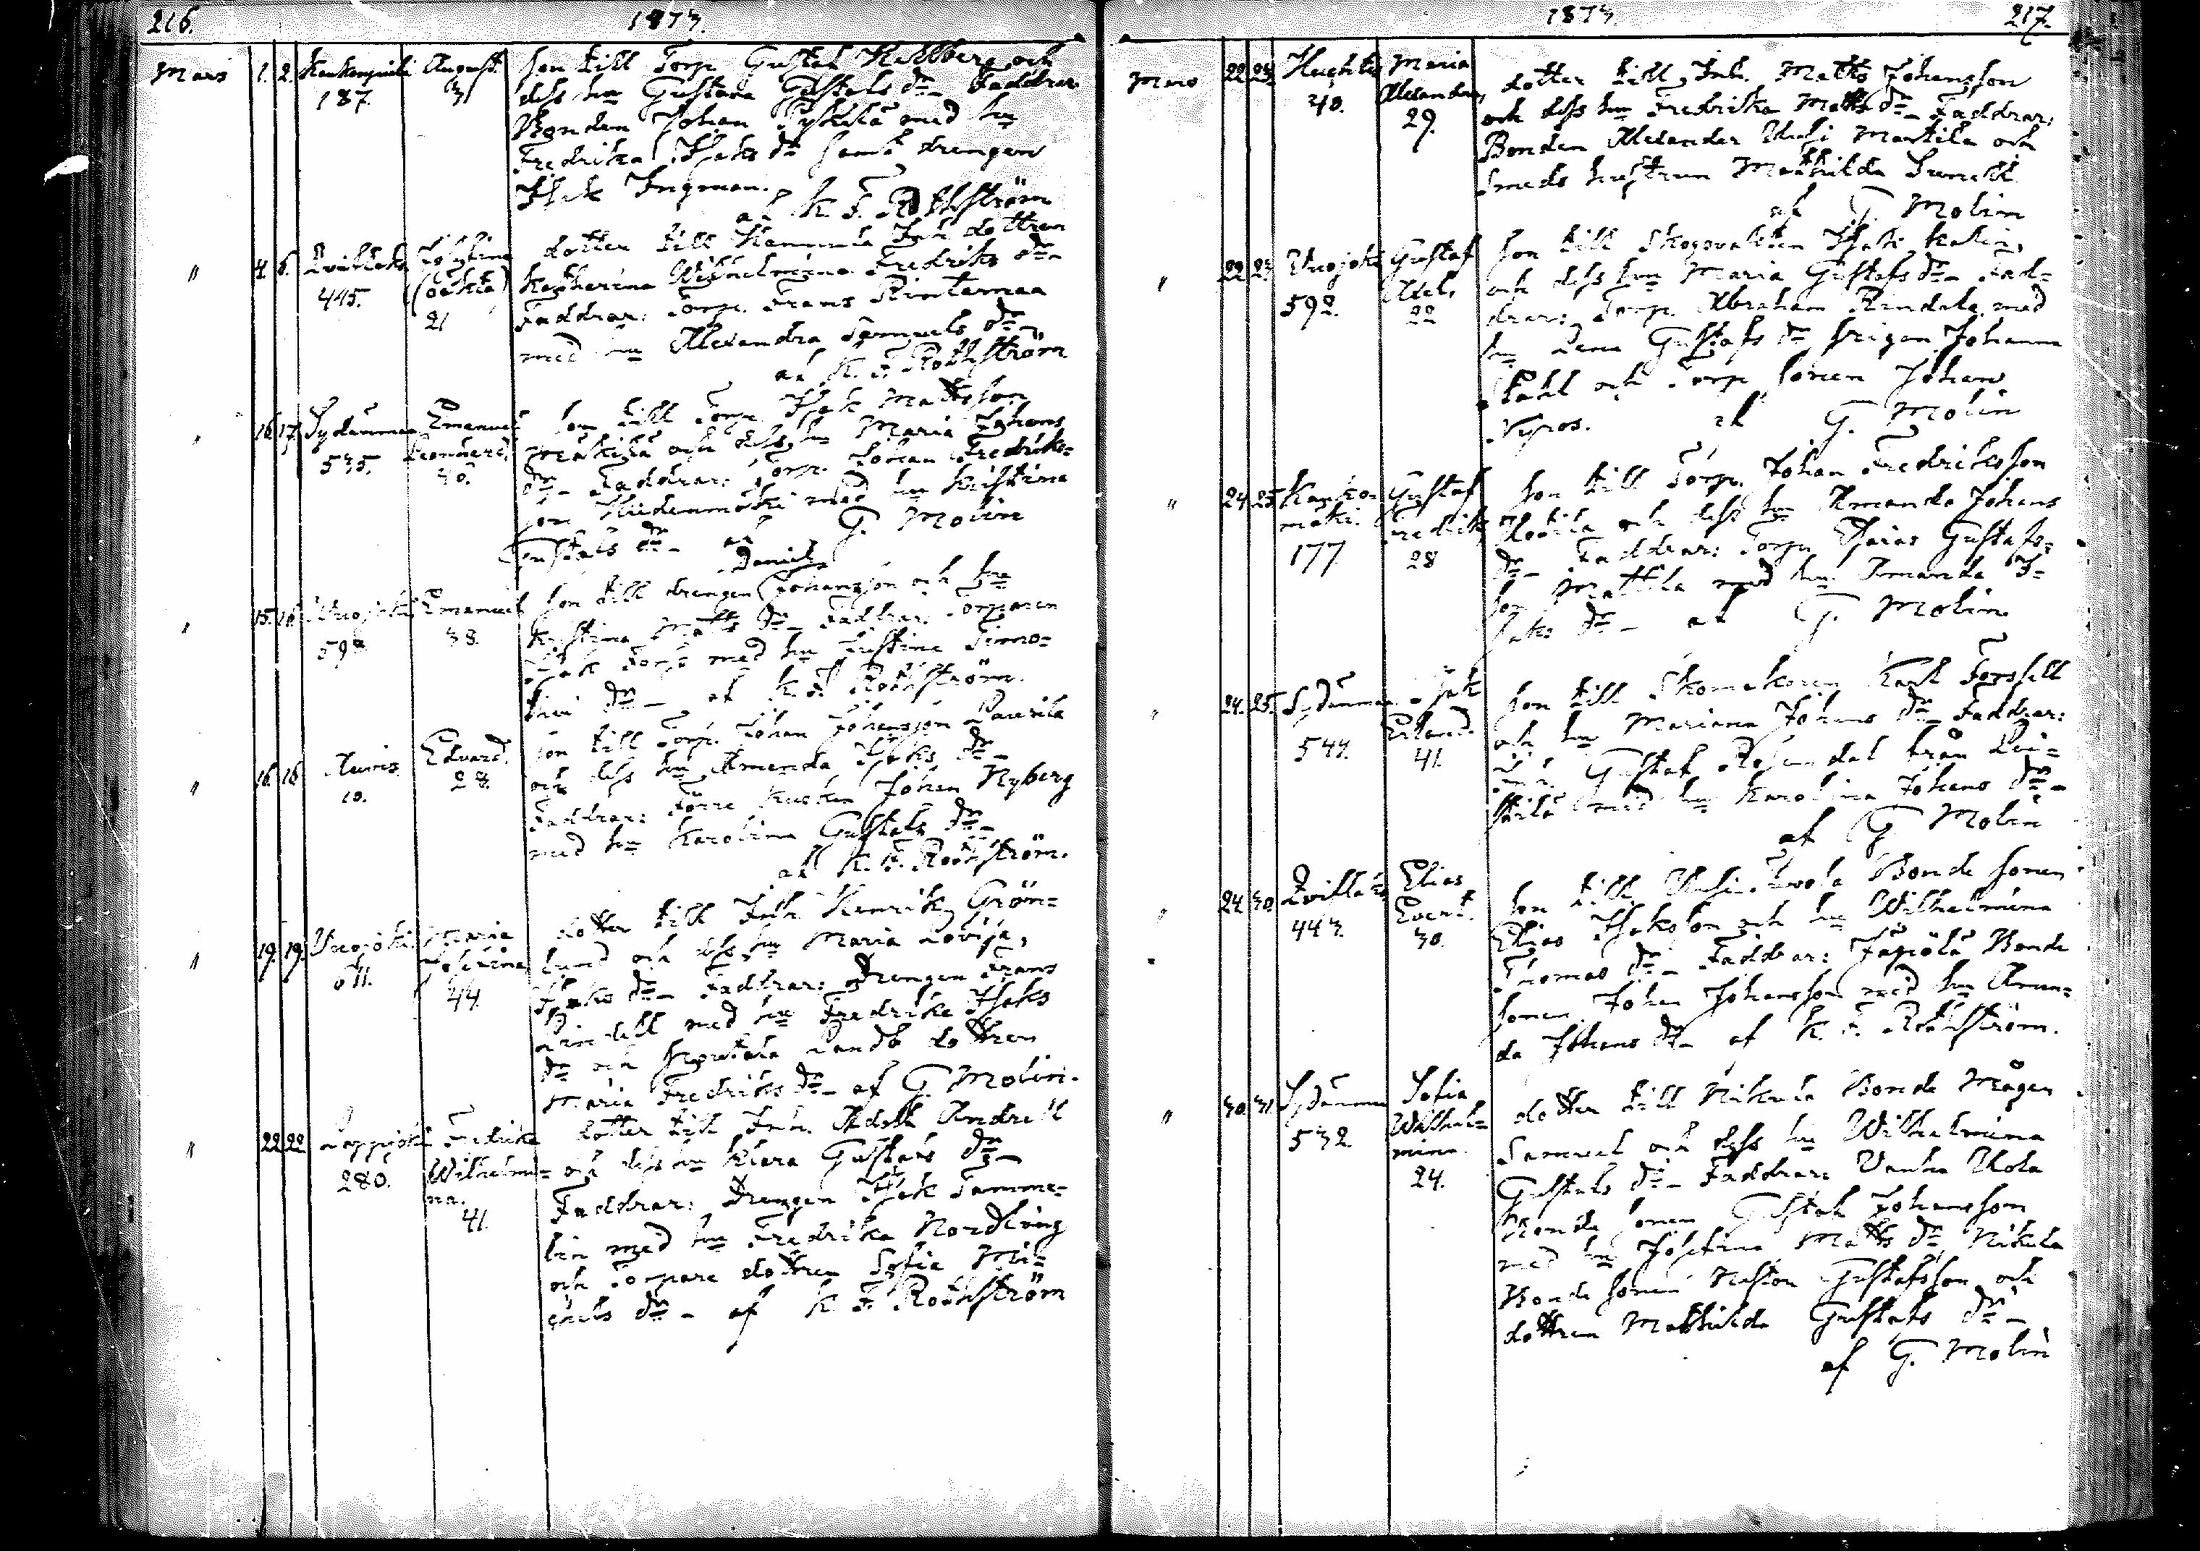 216.
1873.
Mars
1.
2.
187.
August.
3
Son till Torp. Gustaf Hellberg och
dess hu Gustava Gustafs dr. Faddrar
Bonden Johan med hu
Fredrika Isaks dr samt drengen
Isak Ingman.
af K. F. Rothström
"
4.
5.
445.
(oäkta)
21
dotter till Inh. dottren
Katharina Wilhelmina Fredriks dr.
Faddrar: Torp. Frans Rintamaa
med hu Alexandra Samuels dr.
af K. F. Rothström
"
16
17.
Sydänmaa
535.
Emanuel
Leonhard
Son till Torp. Isak Mattsson
och dess hu Maria Johans
dr. Faddrar: Torp. Johan Fredriks-
son med hu Kristina
Gustafs dr. af G. Molin
"
15.
16
59
Emanuel
38.
Daniel
Son till drengen Johansson och hu
Kristina Matts dr. Faddrar: Torparen
Isak med hu Justina Simo-
dr. af K. F. Rothström.
"
16.
16
10.
Edvard.
28.
Son till Torp. Johan Johansson Laurila
och dess hu Amanda Isaks dr.
Faddrar: Förre Kusken Johan Nyberg
med hu Karolina Gustafs dr.
af K. F. Rothström.
"
19.
19.
Vuojoki
611.
Maria
Josefina
44.
dotter till Inh. Henrik Grön-
lund och dess hu Maria Lovisa
Isaks dr. Faddrar: Drengen Frans
Lindell med hu Fredrika Isaks
dr och dottren
Maria Fredriks dr. af G. Molin.
"
22
22
Lappijoki
280.
Fredrika
Wilhelmi-
na.
41.
dotter till Inh. Adolf Andrell
och dess hu Klara Gustafs dr.
Faddrar: Drengen Isak Tamme-
lin med hu Fredrika Nordling
och Torpare dottren Sofia Mi-
chels dr. af K. F. Rothström
1873
217.
Mars
22
23
Huhta
40.
Maria
Alexandra,
29.
dotter till Inh. Matts Johansson
och dess hu Fredrika Matts dr. Faddrar:
Bonden Alexander Uusi Markila och
Smeds hustrun Mathilda Sunell.
af G. Molin
"
22
23
Vuojoki
592.
Gustaf
Axel.
22
Son till Skogvakten Isak Kalin
och dess hu Maria Gustafs dr. Fad-
drar: Torp. Abraham Rindala med
hu Lena Gustafs dr pigan Johanna
Stahl och Torp. sonen Johan
Nyros. af G. Molin
"
24
25
177.
Gustaf
Fredrik
28
Son till Torp. Johan Fredriksson
och dess hu Amanda Johans
dr. Faddrar: Torp. Esaias Gustafs-
son Mattila med hu Amanda I-
saks dr. af G. Molin.
"
24.
25.
Sydänmaa
544.
Isak
Erland.
41.
Son till Skomakaren Karl Forssell
och hu Mariana Johans dr. Faddrar:
Inh. Gustaf Rosendal från Lin-
med hu Karolina Johans dr.
af G. Molin
"
24
30
443.
Elias
Evert.
30.
Son till Bonde sonen
Elias Isaksson och hu Wilhelmina
Thomas dr. Faddrar: Bonde
sonen Johan Johansson med hu Aman-
da Johans dr. af K. F. Rothström.
"
30.
31
Sydänmaa
532
Sofia
Wilhel-
mina.
24.
dotter till Nikula Bonde Mågen
Samuel och dess hu Wilhelmina
Gustafs dr. Faddrar: Vanha
Bonde sonen Gustaf Johansson
med hu Josefina Matts dr. Nikula
Bonde sonen Nestor Gustafsson och
dottren Mathilda Gustafs dr.
af G. Molin